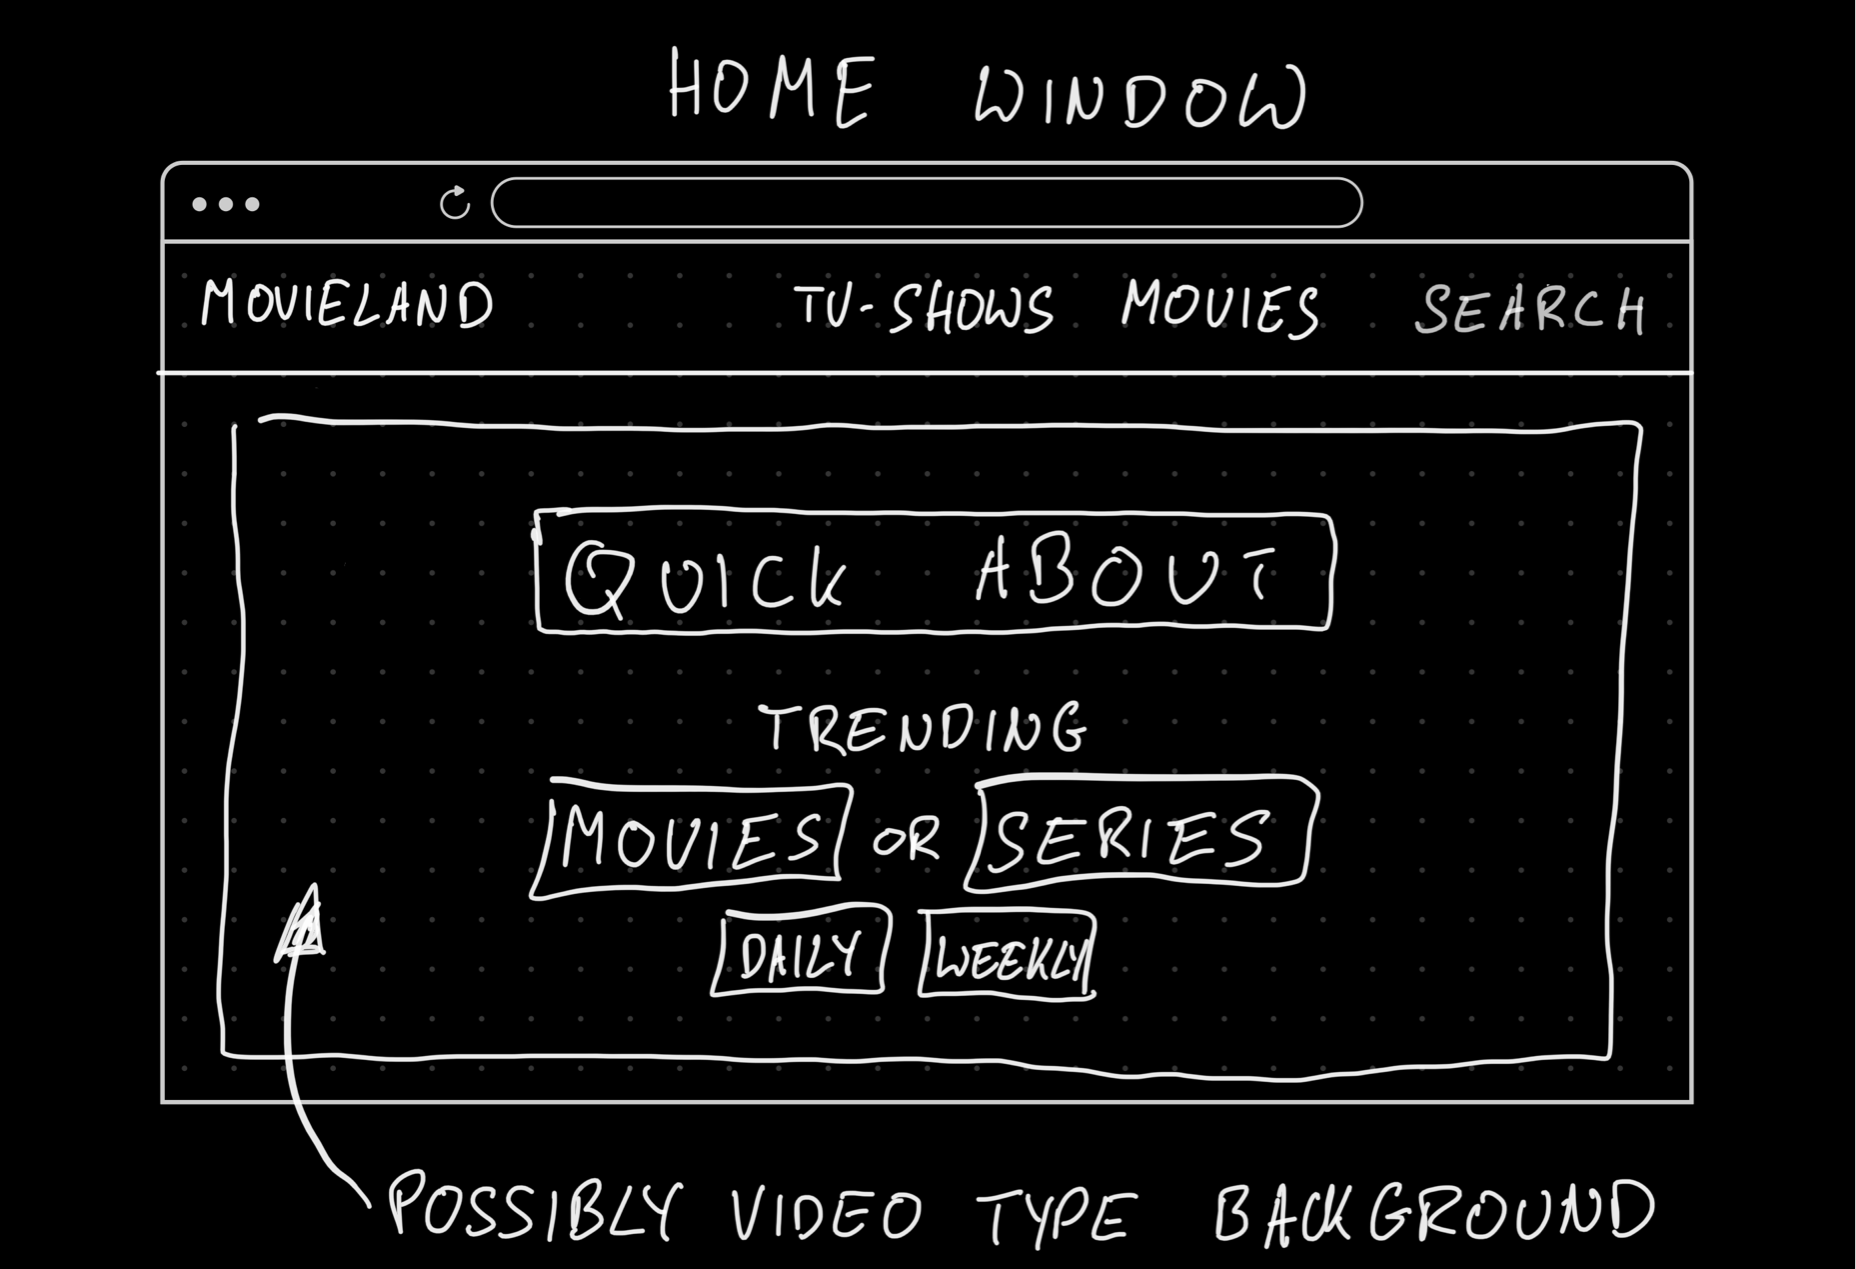 HOME WINDOW
MOVIELAND TV-SHOWS MOVIES SEARCH
QUICK ABOUT
TRENDING
MOVIES OR SERIES
DAILY WEEKLY
POSSIBLY VIDEO TYPE BACKGROUND